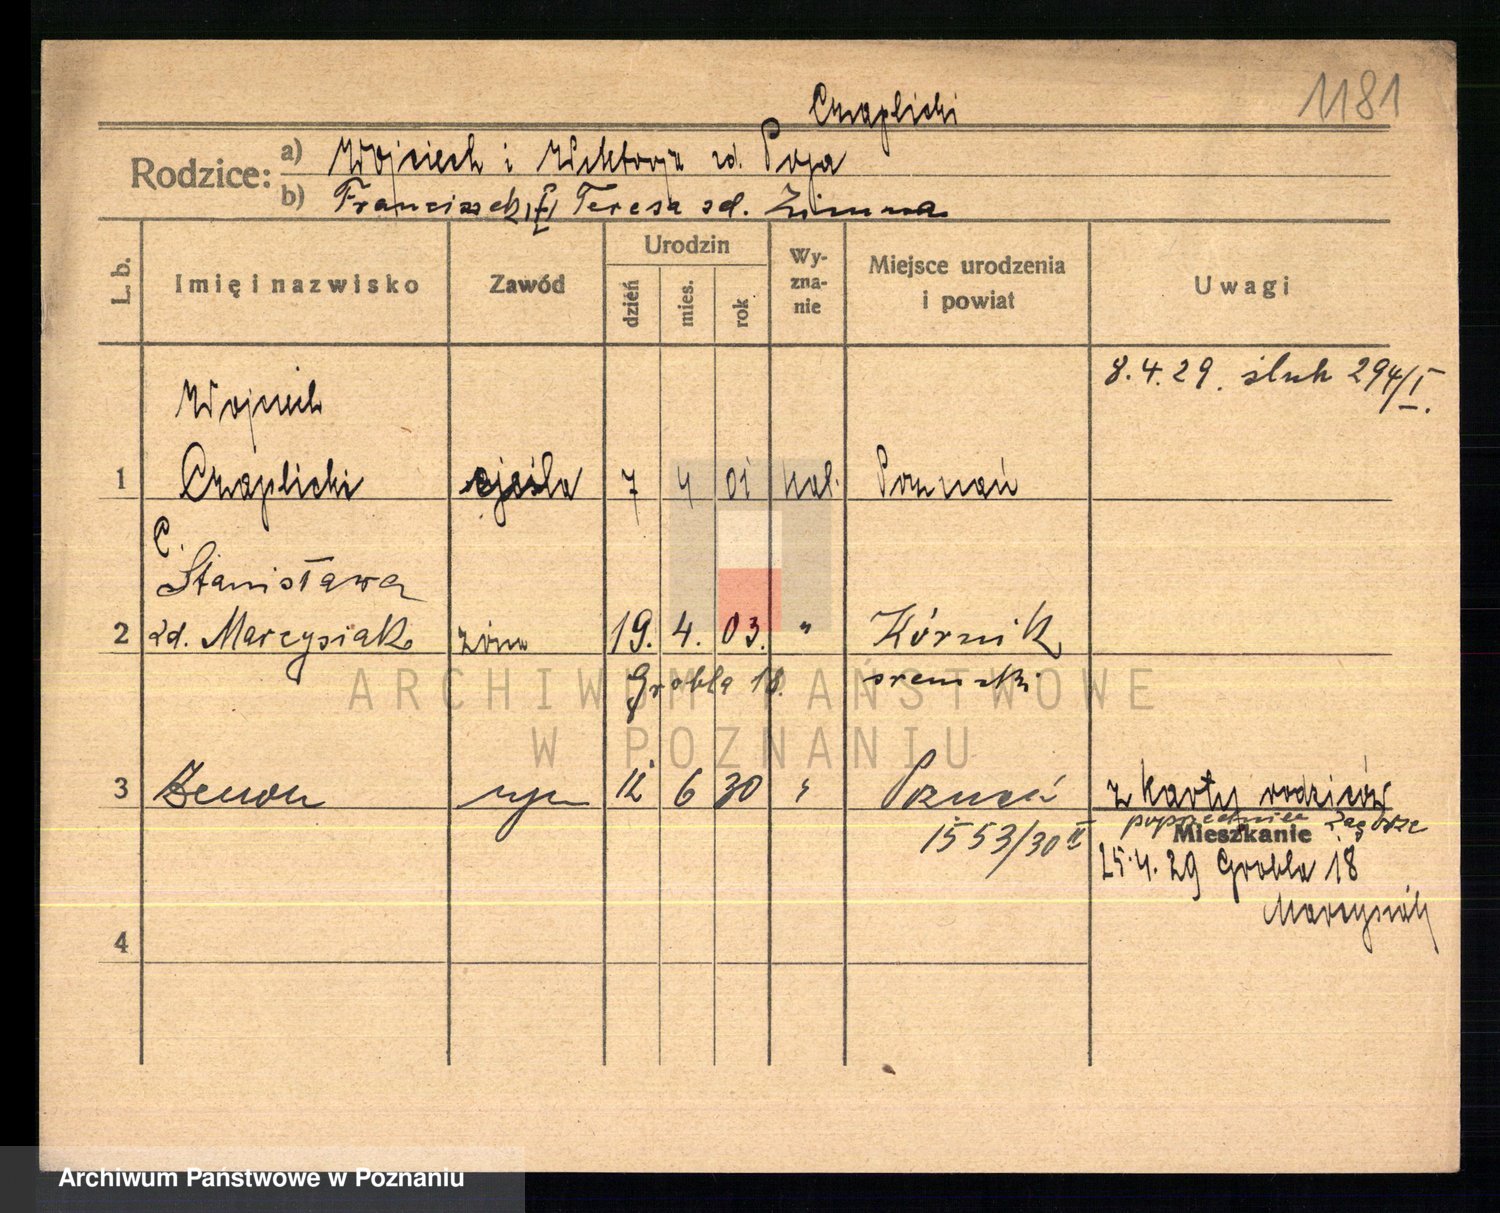 1181
Czaplicki
Rodzice:
a) Wojciech i Wiktorja zd. Poja
b) Franciszek i Teresa zd. Zimna
L. b.
Imię i nazwisko
Zawód
Urodzin
dzień
mies.
rok
Wy-
zna-
nie
Miejsce urodzenia
i powiat
Uwagi
8.4.29. ślub 294/I.
Wojciech
1 Czaplicki cieśla 7 4 01 kat. Poznań
C.
Stanisława
2 zd. Marcysiak żona 19. 4. 03. " Kórnik
Grobla 18. śremski
3 Zenon syn 12 6 30 " Poznań
1553/30 II
z karty rodziców
poprzednie
Mieszkanie
25.4.29 Grobla 18
Marcysiak
4
ARCHIWUM PAŃSTWOWE
W POZNANIU
Archiwum Państwowe w Poznaniu